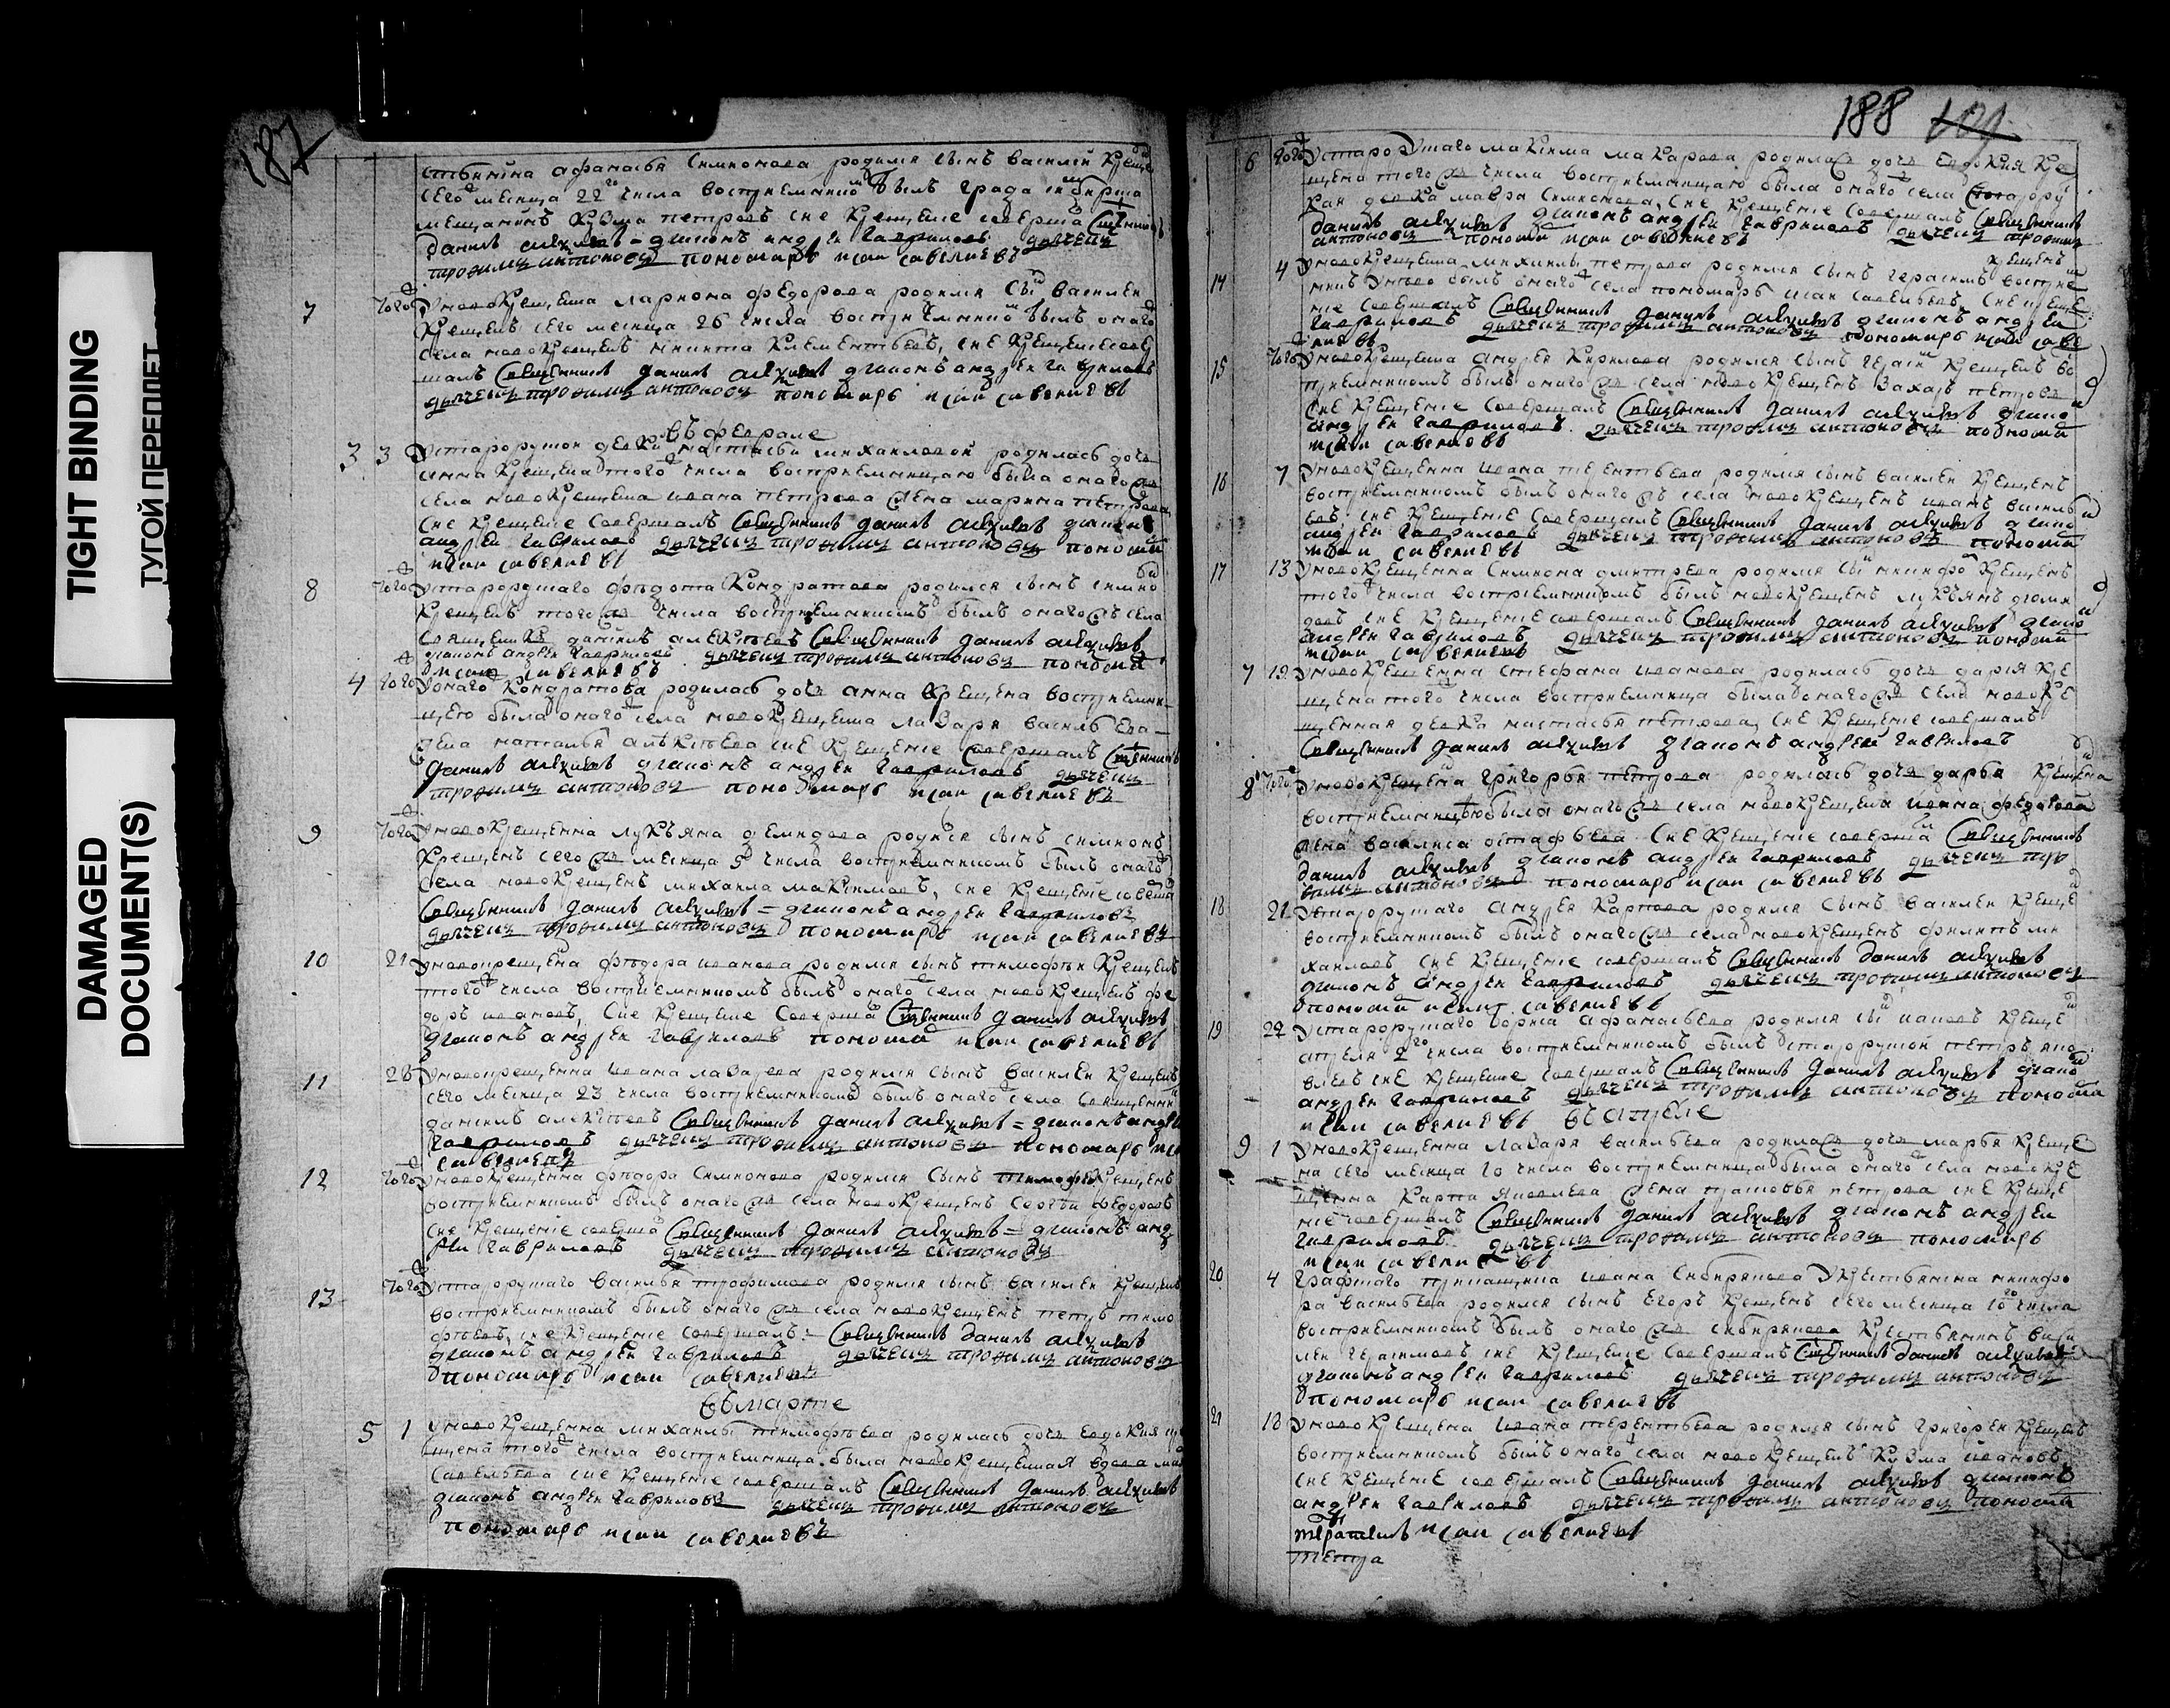 TIGHT BINDING
ТУГОЙ ПЕРЕПЛЕТ
DAMAGED
DOCUMENT(S)
187
ственина афанасья Симионова родился сынъ василей Креще
сего месяца 22 числа восприемникомъ былъ града симбирска
мещанинъ Кузма петровъ сие Крещение соверша Священникъ
данилъ алексеевъ = диаконъ андрей гавриловъ дьячекъ
трофимъ антоновъ пономарь исаи савелиевъ
7 того у новокрещена лариона федорова родился сынъ василеи
Крещенъ сего месяца 26 числа восприемникомъ былъ оного
села новокрещенъ никита Климентьевъ, сие Крещение совер
шалъ Священникъ данилъ алексеевъ диаконъ андрей гавриловъ
дьячекъ трофимъ антоновъ пономарь исаи савелиевъ
въ феврале
3 3 У старорускои девки настасьи михаиловой родилась дочь
анна Крещена того числа восприемницею была оного
села новокрещена ивана петрова жена марина петрова
сие Крещение совершалъ Священникъ данилъ алексеевъ диаконъ
андрей гавриловъ дьячекъ трофимъ антоновъ пономаръ
исаи савелиевъ
8 того у старорускаго федота Кондратова родился сынъ симио
Крещенъ того числа восприемникомъ былъ оного села
священникъ данилъ алексеевъ Священникъ данилъ алексеевъ
диаконъ андрей гавриловъ дьячекъ трофимъ антоновъ пономаръ
исаи савелиевъ
4 того у оного Кондратова родилась дочь анна Крещена восприемни
цею была оного села новокрещена лазаря васильева
жена наталья алексеева сие Крещение совершалъ Священникъ
данилъ алексеевъ диаконъ андрей гавриловъ дьячекъ
трофимъ антоновъ пономарь исаи савелиевъ
9 того у новокрещенна лукьяна демидова родися сынъ симионъ
Крещенъ сего месяца 5 числа восприемникомъ былъ оного
села новокрещенъ михаила максимовъ, сие Крещение соверша
Священникъ данилъ алексеевъ = диаконъ андрей гавриловъ
дьячекъ трофимъ антоновъ пономарь исаи савелиевъ
10 21 у новокрещена федора иванова родился сынъ тимофеи Крещенъ
того числа восприемникомъ былъ оного села новокрещенъ фе
доръ ивановъ, сие Крещение соверша Священникъ данилъ алексеевъ
диаконъ андрей гавриловъ пономаръ исаи савелиевъ
11 у новокрещенна ивана лазарева родился сынъ василеи Крещенъ
сего месяца 23 числа восприемникомъ былъ оного села священникъ
данилъ алексеевъ Священникъ данилъ алексеевъ = диаконъ андрей
гавриловъ дьячекъ трофимъ антоновъ пономарь исаи
савелиевъ
12 того у новокрещенна федора Симионова родился Сынъ тимофеи Крещенъ
восприемникомъ былъ оного села новокрещенъ Сергеи федоровъ
сие Крещение соверша Священникъ данилъ алексеевъ = диаконъ анд
реи гавриловъ дьячекъ трофимъ антоновъ
13 того у старорускаго василья трофимова родился сынъ василеи Крещенъ
восприемникомъ былъ оного села новокрещенъ петръ тимо
феевъ, сие Крещение совершалъ = Священникъ данилъ алексеевъ
диаконъ андрей гавриловъ дьячекъ трофимъ антоновъ
пономарь исаи савелиевъ
въ марте
5 1 у новокрещенна михаилы тимофеева родилась дочь евдокия
щена того числа восприемница была новокрещеная вдова
савельева сие Крещение совершалъ Священникъ данилъ алексеевъ
диаконъ андрей гавриловъ дьячекъ трофимъ антоновъ
пономарь исаи савелиевъ
188
6 того у старорускаго максима макарова родилась дочь евдокия Кре
щена того числа восприемницею была оного села старору
ская девка мавра симионова, сие крещение совершалъ Священникъ
данилъ алексеевъ диаконъ андрей гавриловъ дьячекъ трофимъ
антоновъ пономаръ исаи савелиевъ
14 4 у новокрещена михаилы петрова родился сынъ герасимъ крещенъ восприе
никъ былъ оного села пономарь исаи савельевъ сие креще
ние совершалъ Священникъ данилъ алексеевъ диаконъ андрей
гавриловъ дьячекъ трофимъ антоновъ пономарь исаи саве
лиевъ
15 того у новокрещена андрея Кирилова родился сынъ Крещенъ во
приемникомъ былъ оного села новокрещенъ захаръ петровъ
сие Крещение совершалъ Священникъ данилъ алексеевъ диако
андрей гавриловъ дьячекъ трофимъ антоновъ пономаръ
исаи савелиевъ
16 7 у новокрещенна ивана терентьева родился сынъ василеи Крещенъ
восприемникомъ былъ оного села новокрещенъ иванъ василь
евъ сие Крещение совершалъ Священникъ данилъ алексеевъ диако
андрей гавриловъ дьячекъ трофимъ антоновъ пономаръ
исаи савелиевъ
17 13 у новокрещенна Симиона дмитрева родился сынъ никифо Крещенъ
того числа восприемникомъ былъ новокрещенъ лукьянъ деми
довъ сие Крещение совершалъ Священникъ данилъ алексеевъ диако
андрей гавриловъ дьячекъ трофимъ антоновъ пономаръ
исаи савелиевъ
7 19 у новокрещенна стефана иванова родилась дочь дария Кре
щена того числа восприемница была оного села новокре
щенная девка настасья петрова, сие Крещение совершалъ
Священникъ данилъ алексеевъ диаконъ андрей гавриловъ
8 того у новокрещена григорья петрова родилась дочь дарья Крещена
восприемницею была оного села новокрещена ивана федорова
жена василиса остафьева сие Крещение соверша Священникъ
данилъ алексеевъ диаконъ андрей гавриловъ дьячекъ тро
фимъ антоновъ пономарь исаи савелиевъ
18 21 у старорускаго андрея Карпова родился сынъ василеи Креще
восприемникомъ былъ оного села новокрещенъ филипъ ми
хаиловъ сие Крещение совершалъ Священникъ данилъ алексеевъ
диаконъ андрей гавриловъ дьячекъ трофимъ антоновъ
пономаръ исаи савелиевъ
19 22 у старорускаго бориса афанасьева родился сынъ Креще
апреля 2 числа восприемникомъ былъ старорускои петръ яко
влевъ сие крещение совершалъ Священникъ данилъ алексеевъ диако
андрей гавриловъ дьячекъ трофимъ антоновъ пономаръ
исаи савелиевъ въ апреле
9 1 у новокрещенна лазаря васильева родилась дочь марья Креще
на сего месяца 10 числа восприемница была оного села новокре
щенна Карпа яковлева жена прасковья петрова сие Креще
ние совершалъ Священникъ данилъ алексеевъ диаконъ андрей
гавриловъ дьячекъ трофимъ антоновъ пономарь
исаи савелиевъ
20 4 ивана Сибирякова у Крестьянина никифо
ра васильева родился сынъ Егоръ Крещенъ сего месяца 10 числа
восприемникомъ былъ оного сибирякова Крестьянинъ васи
леи герасимовъ сие Крещение совершалъ Священникъ данилъ алексеевъ
диаконъ андрей гавриловъ дьячекъ трофимъ антоновъ
пономарь исаи савелиевъ
21 18 у новокрещена ивана терентьева родился сынъ григореи Крещенъ
восприемникомъ былъ оного села новокрещенъ Кузма ивановъ
сие Крещение совершалъ Священникъ данилъ алексеевъ диаконъ
андрей гавриловъ дьячекъ трофимъ антоновъ пономаръ
исаи савелиевъ